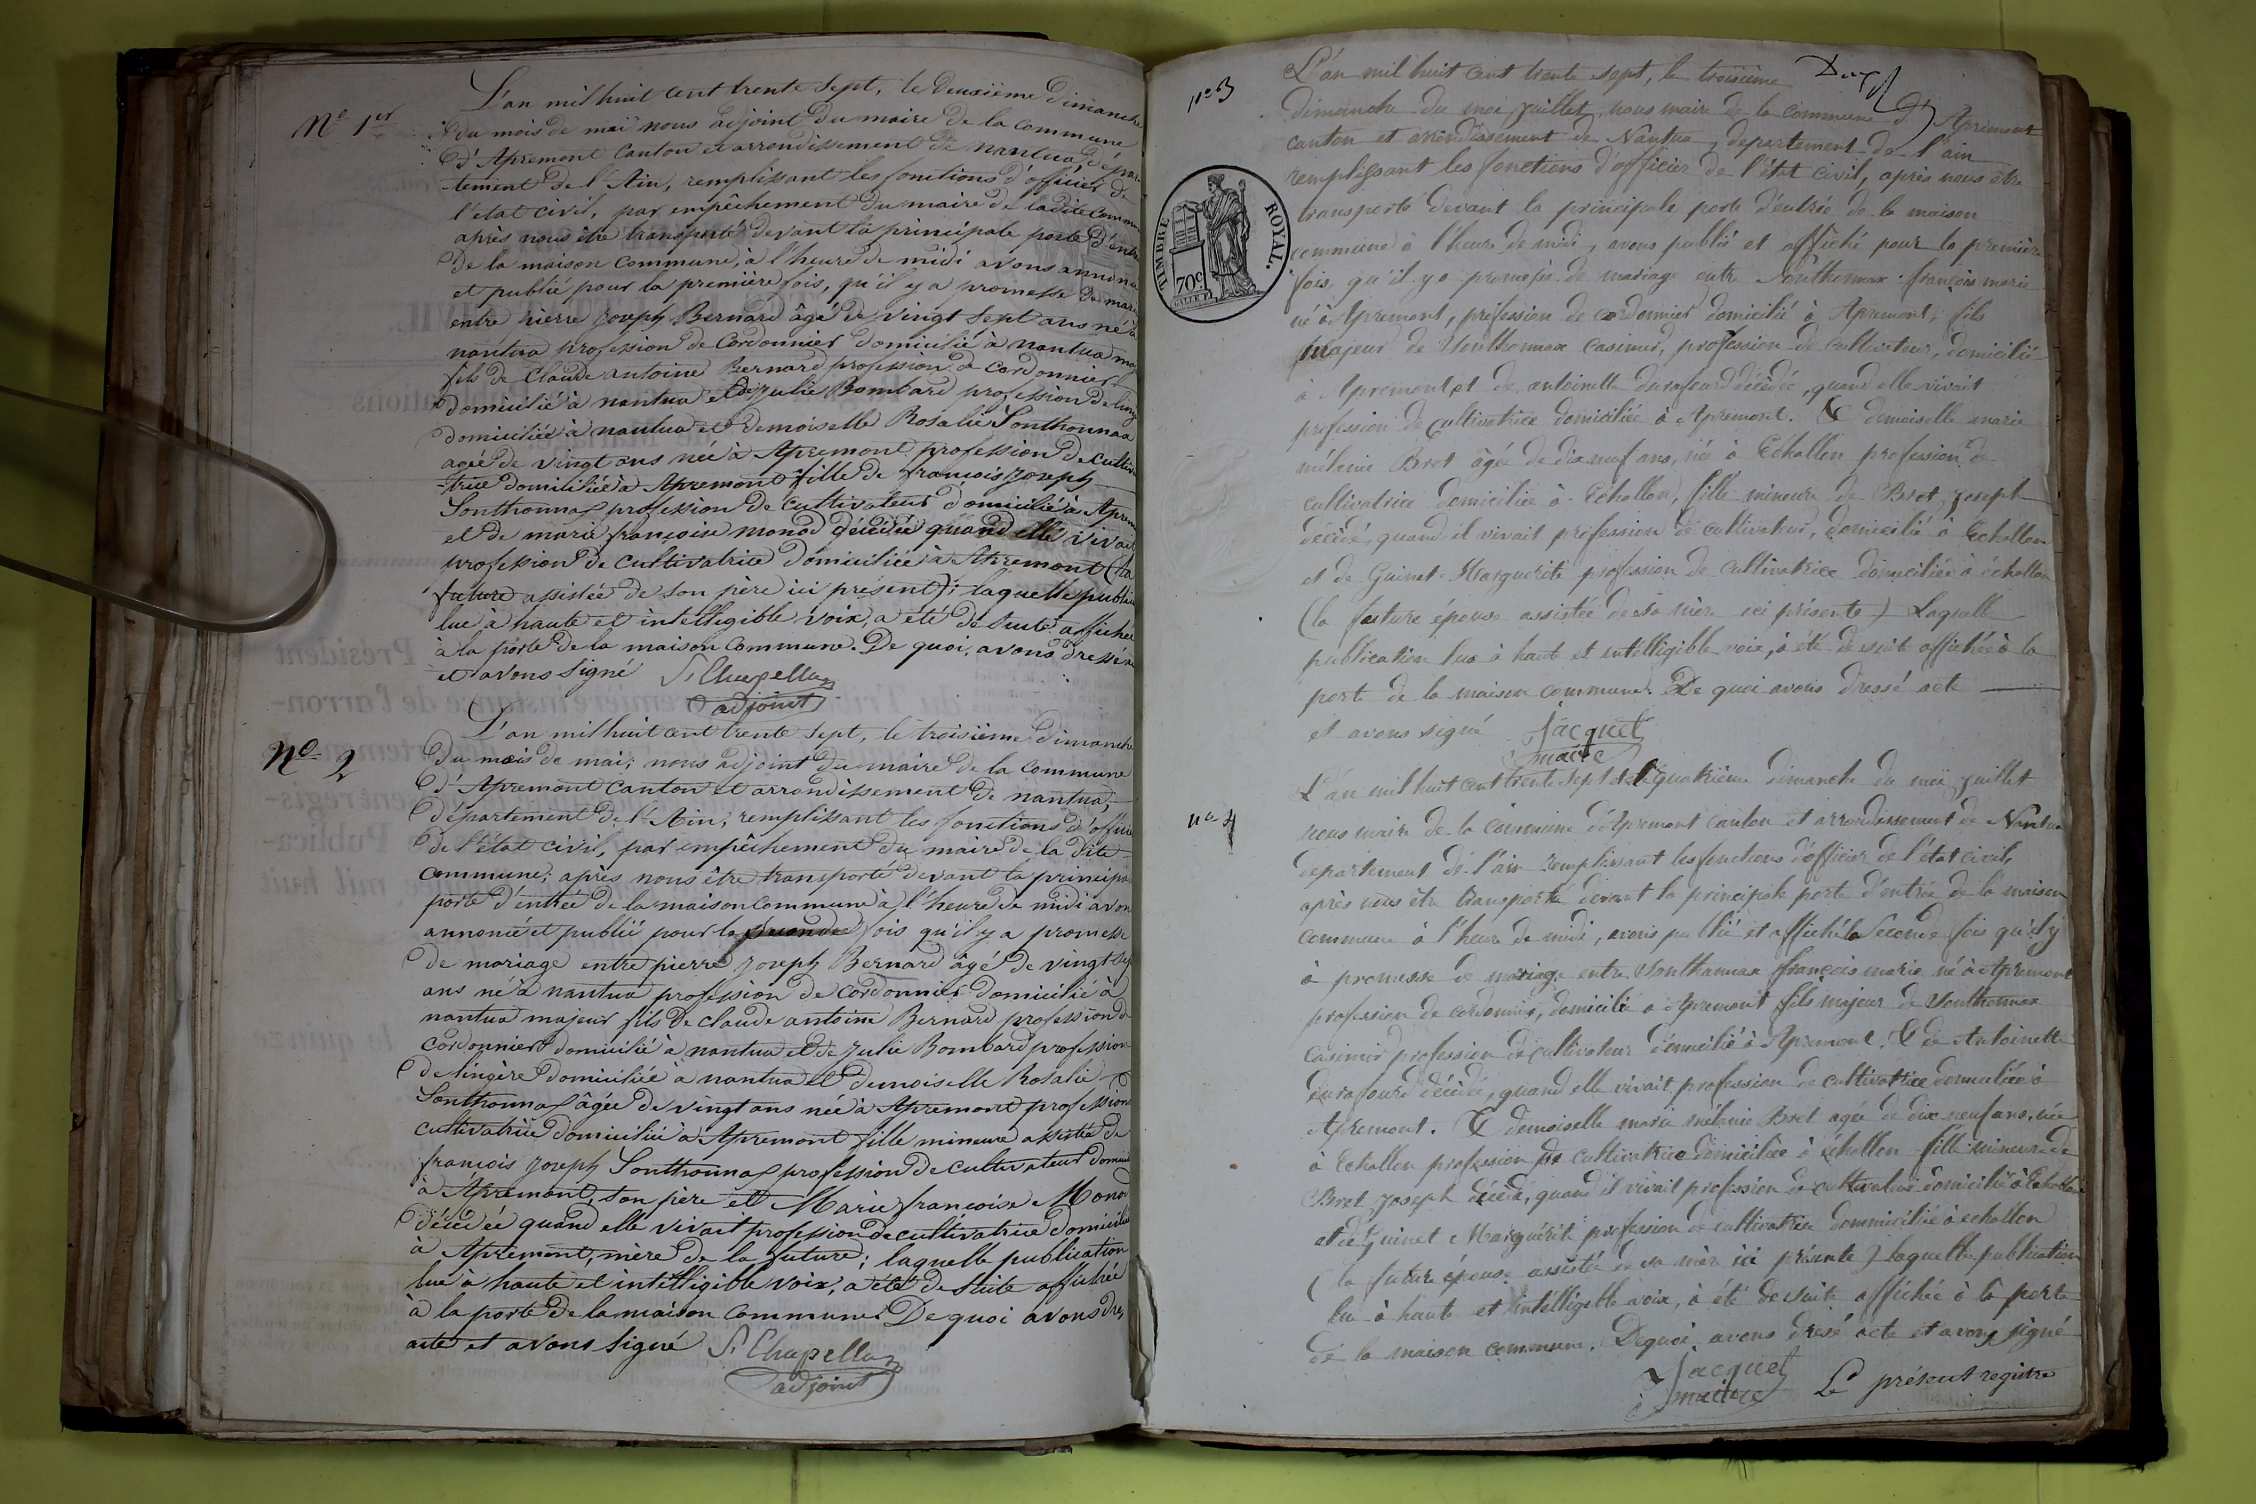 Nº 1er
L'an mil huit cent trente sept, le Deuxième Dimanche
du mois de mai nous adjoint du maire de la commune
d'Apremont canton et arrondissement de nantua, dépar
-tement de l'Ain, remplissant les fonctions d'officier de
l'état civil, par empêchement du maire de ladite commu
après nous être transporté devant la principale porte d'entré
de la maison commune, à l'heure de midi avons annoncé
et publié pour la première fois, qu'il y a promesse de mari
entre pierre joseph Bernard âgé de vingt sept ans né à
nantua profession de Cordonnier domicilié à nantua maj
fils de Claude antoine Bernard profession de cordonnier
domicilié à nantua et de julie Bombard profession de ling
domiciliée à nantua et demoiselle Rosalie Sonthonnax
agée de vingt ans née à Apremont profession de cultiva
-trice domiciliée à Apremont fille de françois joseph
Sonthonnax profession de cultivateur domicilié à Aprem
et de marie françoise monod décédée quand elle vivait
profession de cultivatrice domiciliée à Apremont (la
future assistée de son père ici présent); laquelle publica
lue à haute et intelligible voix, a été de suite affichée
à la porte de la maison commune. De quoi, avons dressé
et avons signé S. Chapellu
adjoint
Nº 2
L'an mil huit cent trente sept, le troisième dimanche
du mois de mai; nous adjoint du maire de la commune
d'Apremont canton et arrondissement de nantua,
département de l'Ain; remplissant les fonctions d'offici
de l'état civil, par empêchement du maire de la dite
commune; après nous être transporté devant la principa
porte d'entrée de la maison commune à l'heure de midi avon
annoncé et publié pour la seconde fois qu'il y a promesse
de mariage entre pierre joseph Bernard âgé de vingt sep
ans né à nantua profession de cordonnier domicilié à
nantua majeur fils de claude antoine Bernard profession de
cordonnier domicilié à nantua et de julie Bombard profession
de lingère domiciliée à nantua et demoiselle Rosalie
Sonthonnax âgée de vingt ans née à Apremont profession
cultivatrice domiciliée à Apremont fille mineure assistée de
françois joseph Sonthonnax profession de cultivateur domici
à Apremont, son père et Marie françoise Monod
décédée quand elle vivait profession de cultivatrice domicilié
à Apremont, mère de la future; laquelle publication
lue à haute et intelligible voix, a été de suite affichée
à la porte de la maison commune. De quoi avons dres
acte et avons signé S. Chapellu
adjoint
nº 3
Deux
L'an mil huit cent trente sept, le troisième
dimanche du moi juillet nous maire de la commune d'Apremont
canton et arrondissement de Nantua, departement de l'ain
remplissant les fonctions d'officier de l'état civil, après nous être
transporté devant la principale porte d'entrée de la maison
commune à l'heure de midi, avons publié et affiché pour la première
fois, qu'il y a promesse de mariage entre Sonthonnax françois marie
né à Apremont, profession de cordonnier domicilié à Apremont, fils
majeur de Sonthonnax Casimir, profession de cultivateur, domicilié
à Apremont et de antoinette durafour décédée, quand elle vivait
profession de cultivatrice domiciliée à Apremont. Et demoiselle marie
mélanie Bret âgée de dix neuf ans, née à Echallon profession de
cultivatrice domiciliée à Echallon, fille mineure de Bret joseph
décédé, quand il vivait profession de cultivateur, domicilié à Echallon
et de Guinet Marguerite profession de cultivatrice domiciliée à échallon
(la future épouse assistée de sa mère ici présente) Laquelle
publication lue à haute et intelligible voix, à été de suite affichée à la
porte de la maison commune. De quoi avons dressé acte
et avons signé Jacquet
maire
TIMBRE ROYAL.
70c
nº 4
L'an mil huit cent trente sept et le quatrième dimanche du moi juillet
nous maire de la commune d'Apremont canton et arrondissement de Nantua
departement de l'ain remplissant les fonctions d'officier de l'état civil,
après nous être transporté devant la principale porte d'entrée de la maison
commune à l'heure de midi, avons publié et affiché la seconde fois qu'il y
à promesse de mariage entre Sonthannax françois marie né à Apremont
profession de cordonnier, domicilié à Apremont fils majeur de Sonthonnax
Casimir profession de cultivateur domicilié à Apremont. Et de Antoinette
durafour décédé, quand elle vivait profession de cultivatrice domiciliée à
Apremont. Et demoiselle marie mélanie Bret agée de dix neuf ans, née
à Echallon profession de cultivatrice domiciliée à échallon fille mineure de
Bret joseph décédé, quand il vivait profession de cultivateur domicilié à Echallon
et de Guinet Marguerite profession de cultivatrice domiciliée à echallon
(la future épouse assisté de sa mère ici présente) laquelle publication
lue à haute et intelligible voix, à été de suite affichée à la porte
de la maison commune. De quoi avons dresé acte et avons signé
Jacquet
maire
Le présent registre